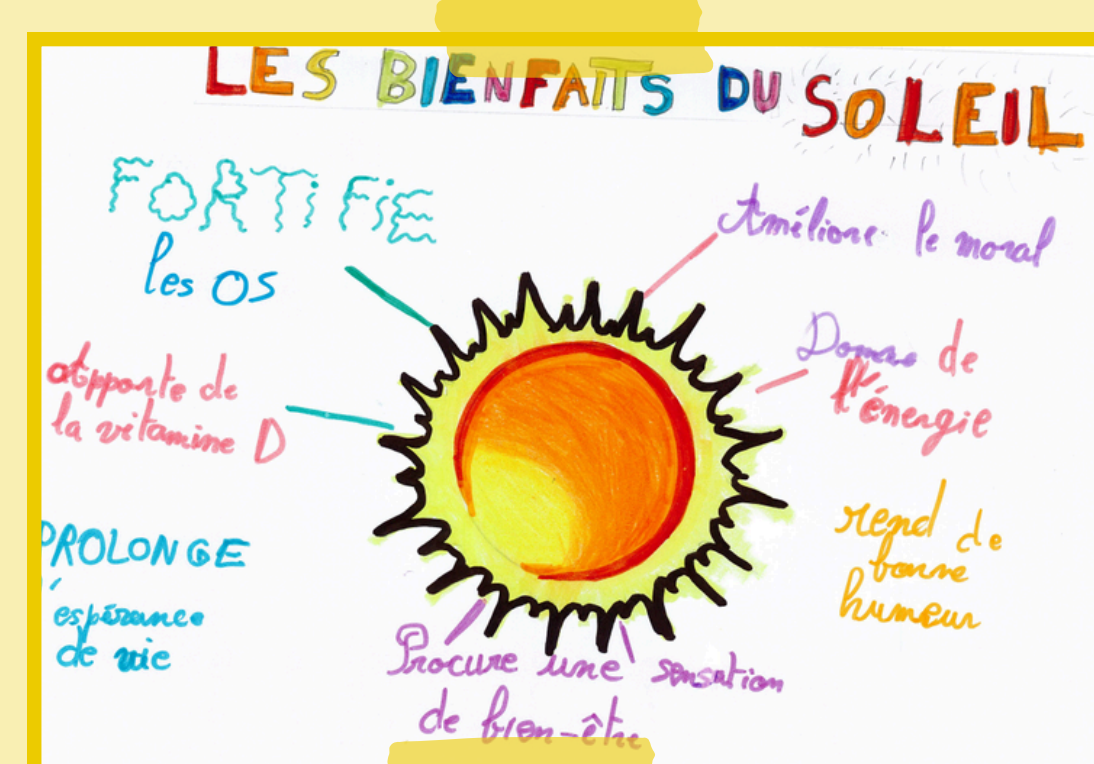 LES BIENFAITS DU SOLEIL
FORTiFiE
les OS
Améliore le moral
Apporte de
la vitamine D
Donne de
l'énergie
PROLONGE
espérance
de vie
rend de
bonne
humeur
Procure une sensation
de bien-être